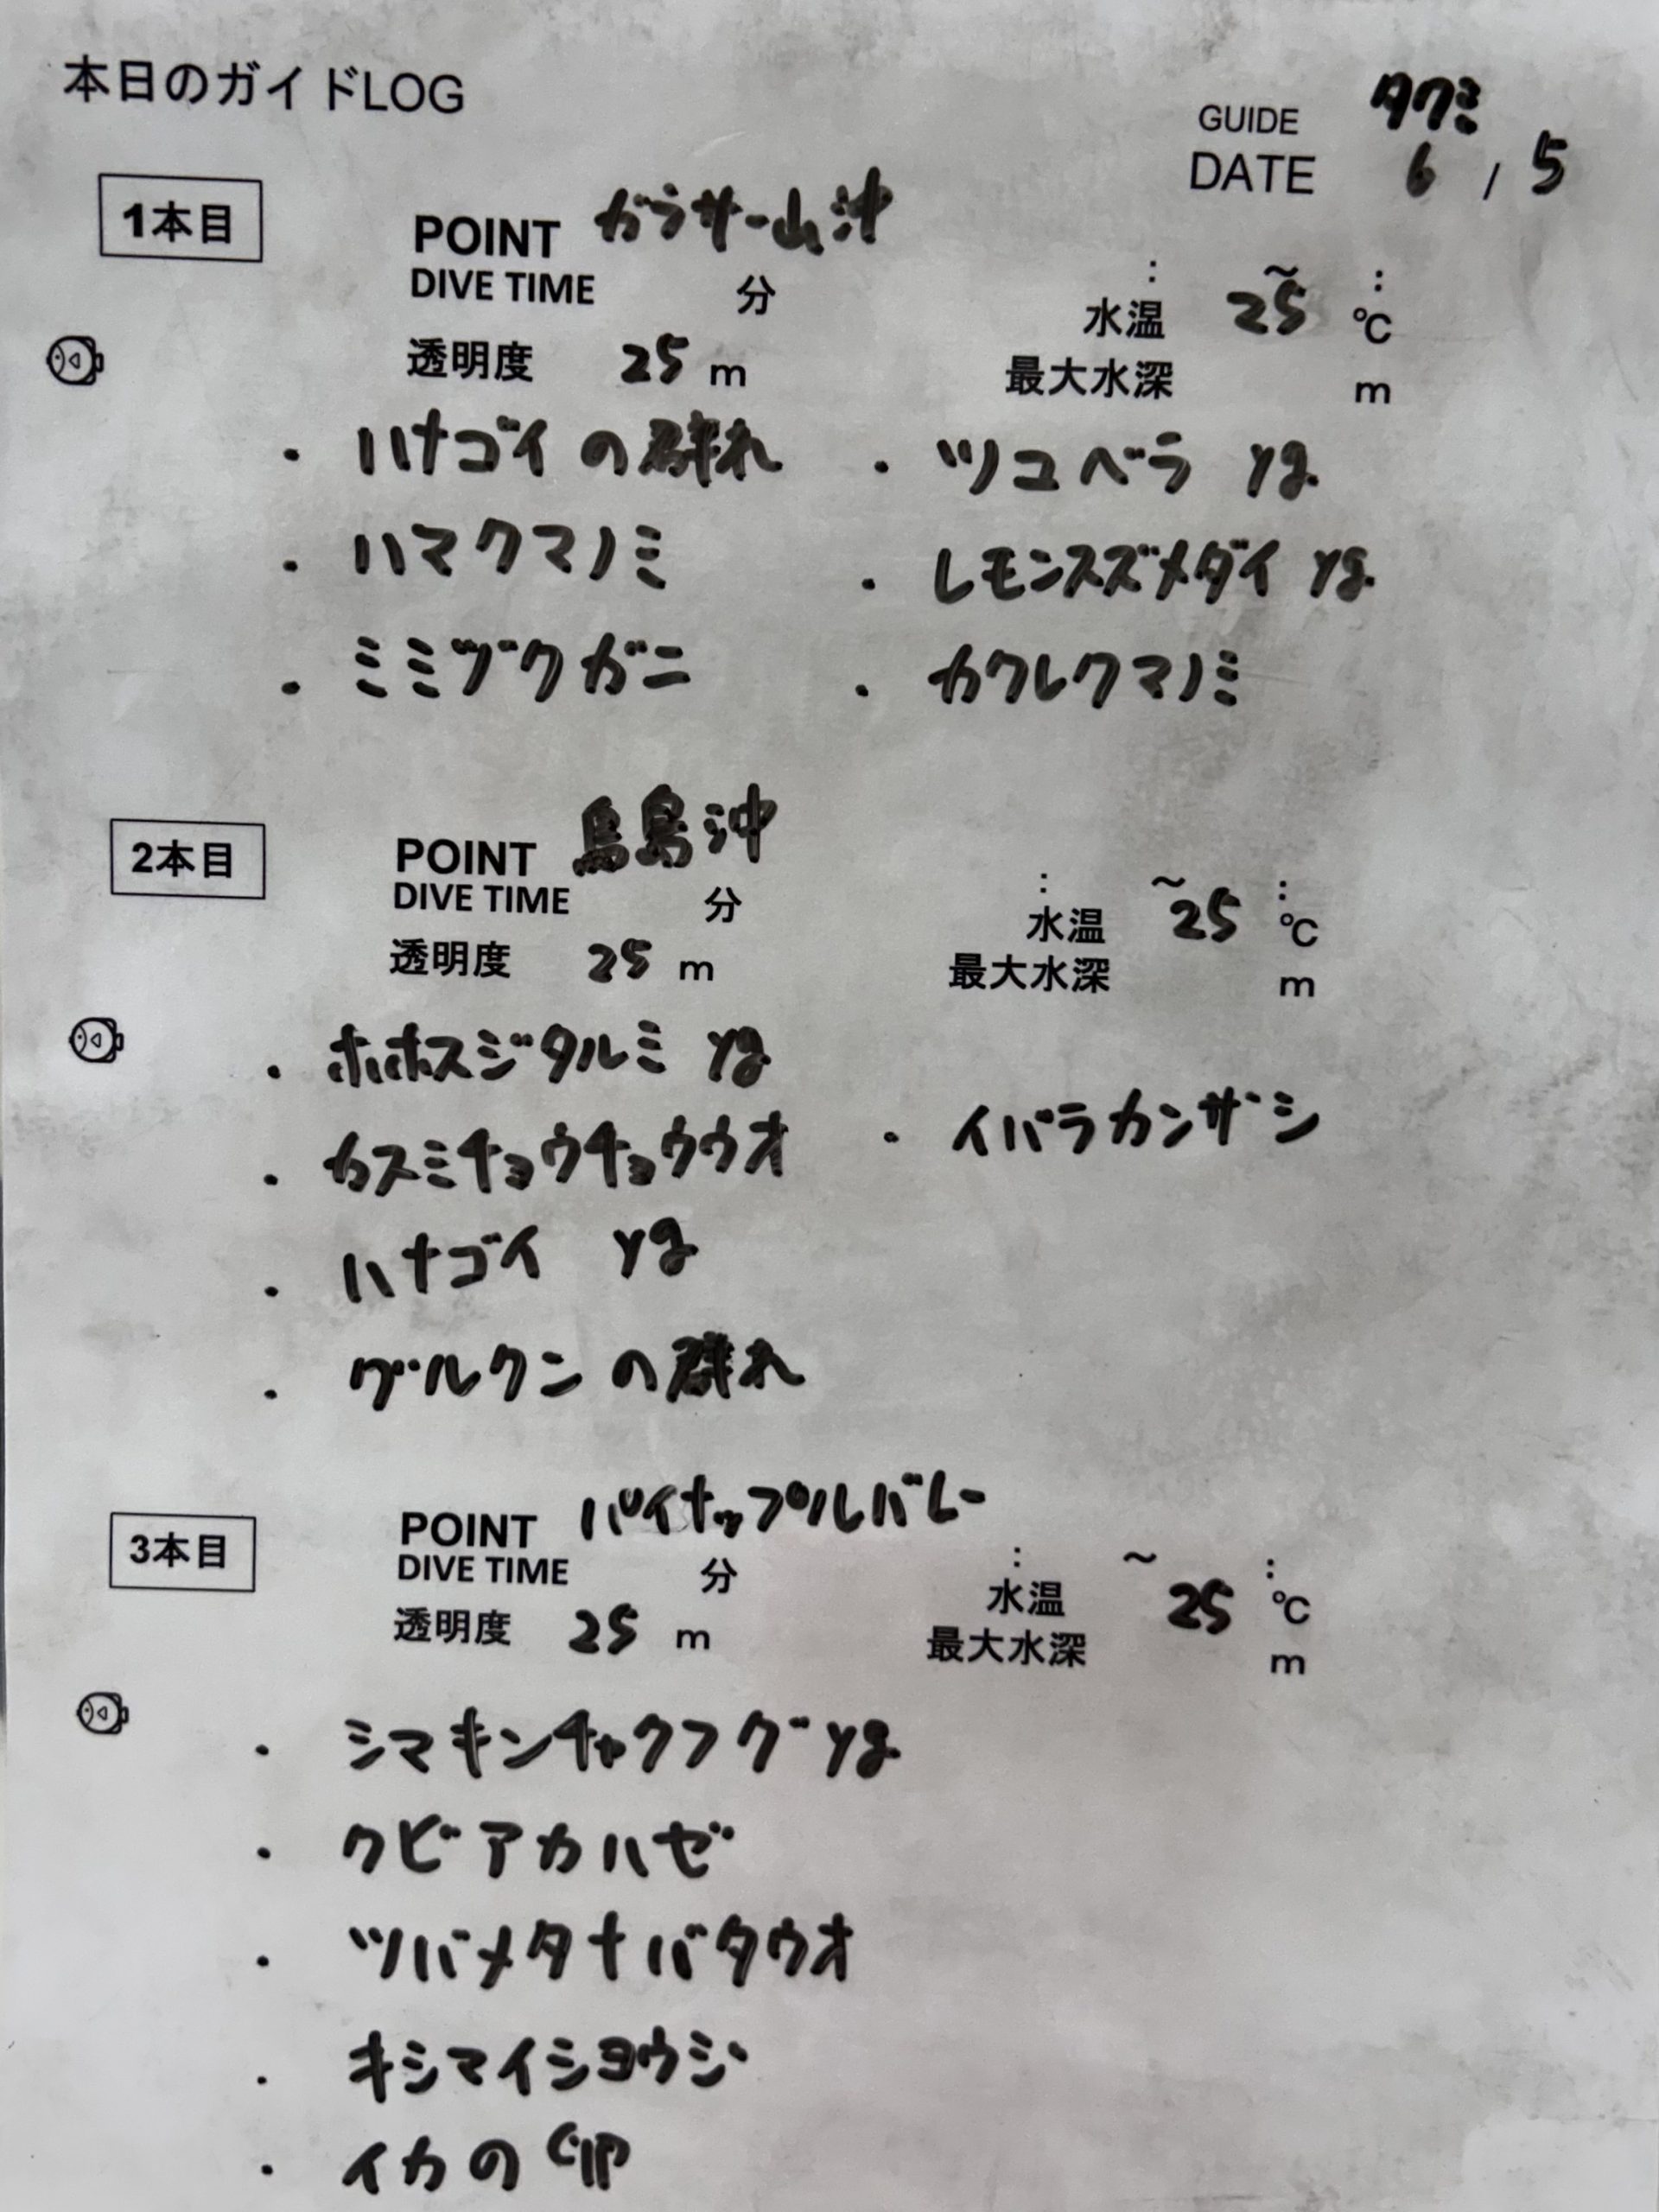 本日のガイドLOG
GUIDE タクミ
DATE 6 / 5
1本目
POINT ガラサー山沖
DIVE TIME 分 : ~ :
水温 25 ℃
透明度 25 m
最大水深 m
・ハナゴイの群れ ・ツユベラ yg
・ハマクマノミ ・レモンスズメダイ yg
・ミミヅクガニ ・カクレクマノミ
2本目
POINT 鳥島沖
DIVE TIME 分 : ~ :
水温 25 ℃
透明度 25 m
最大水深 m
・ホホスジタルミ yg
・カスミチョウチョウウオ ・イバラカンザシ
・ハナゴイ yg
・グルクンの群れ
3本目
POINT パイナップルバレー
DIVE TIME 分 : ~ :
水温 25 ℃
透明度 25 m
最大水深 m
・シマキンチャクフグ yg
・クビアカハゼ
・ツバメタナバタウオ
・キシマイシヨウジ
・イカの卵